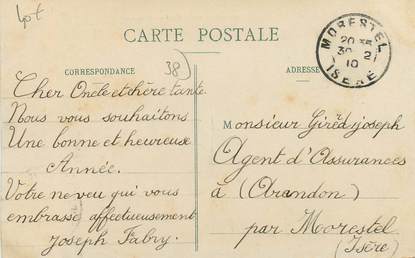 Lot
CARTE POSTALE
CORRESPONDANCE
38)
ADRESSE
MORESTEL
20 35
30 - 2
10
ISERE
Cher Oncle et chère tante
Nous vous souhaitons
Une bonne et heureuse
Année.
Votre neveu qui vous
embrasse affectueusement
Joseph Fabry.
Monsieur Giréd joseph
Agent d'Assurances
à (Arandon)
par Morestel
(Isère)